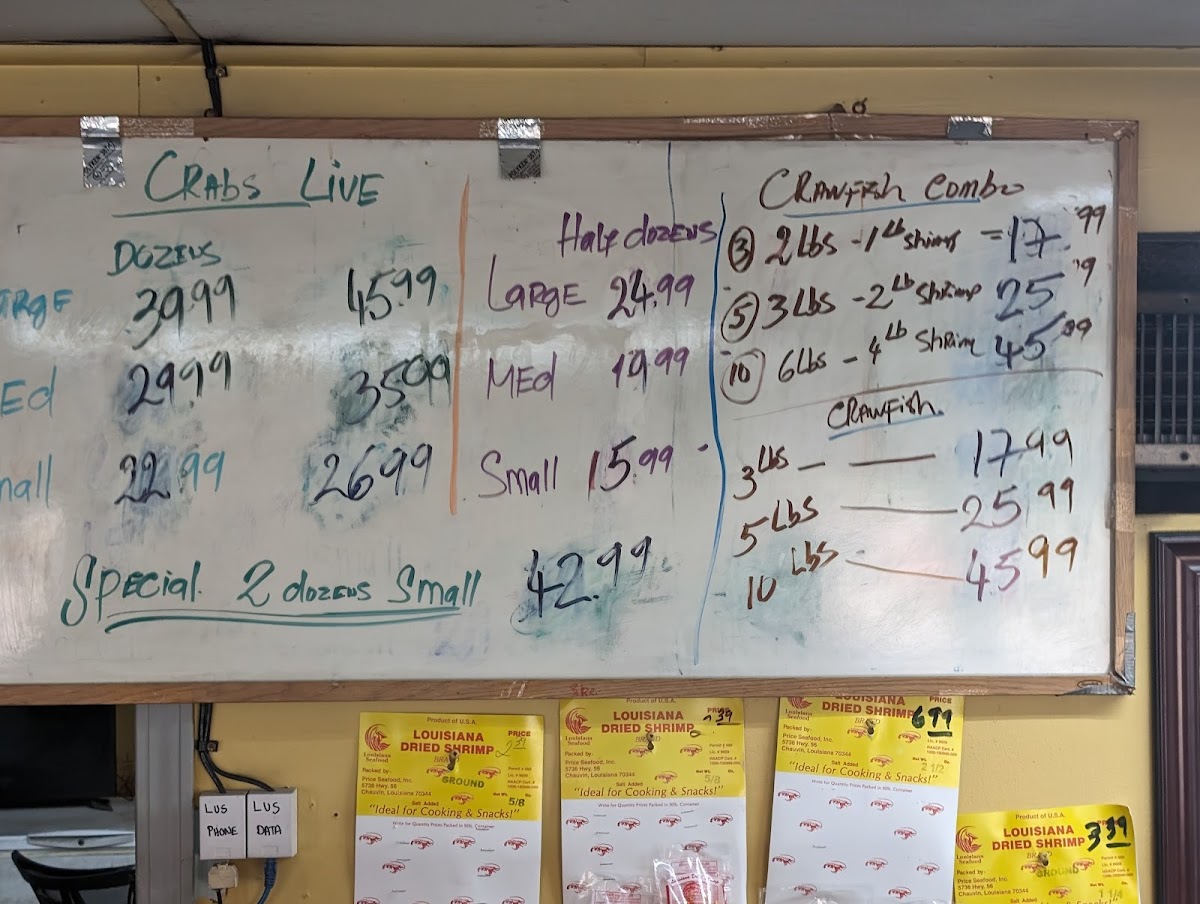 CRAbS LIVE
DOZENS
39.99 45.99
29.99 35.99
22.99 26.99
SPECIAL. 2 dozens Small 42.99
Half dozens
LARGE 24.99
MEd 19.99
Small 15.99
CRAWFISH COMBO
3 2 Lbs - 1 Lb shrimp = 17.99
5 3 Lbs - 2 Lb shrimp 25
10 6 Lbs - 4 Lb shrimp 45.99
CRAWFISH.
3 Lbs — — 17 99
5 Lbs — 25 99
10 Lbs — 45 99
LUS PHONE
LUS DATA
Product of U.S.A.
Louisiana Seafood
LOUISIANA
DRIED SHRIMP
BRAND
GROUND
Packed by:
Price Seafood, Inc.
5736 Hwy. 56
Chauvin, Louisiana 70344
Salt Added
Net Wt. Oz.
5/8
"Ideal for Cooking & Snacks!"
Write for Quantity Prices Packed in 50lb. Container
Product of U.S.A.
Louisiana Seafood
LOUISIANA
DRIED SHRIMP
BRAND
PRICE
Packed by:
Price Seafood, Inc.
5736 Hwy. 56
Chauvin, Louisiana 70344
Salt Added
5/8
"Ideal for Cooking & Snacks!"
Write for Quantity Prices Packed in 50lb. Container
LOUISIANA
DRIED SHRIMP
BRAND
PRICE
6.99
Louisiana Seafood
Packed by:
Price Seafood, Inc.
5736 Hwy. 56
Chauvin, Louisiana 70344
Salt Added
2 1/2
"Ideal for Cooking & Snacks!"
Write for Quantity Prices Packed in 50lb. Container
Product of U.S.A.
Louisiana Seafood
LOUISIANA
DRIED SHRIMP
BRAND
PRICE
3.39
GROUND
Packed by:
Price Seafood, Inc.
5736 Hwy. 56
Chauvin, Louisiana 70344
Salt Added
1 1/4